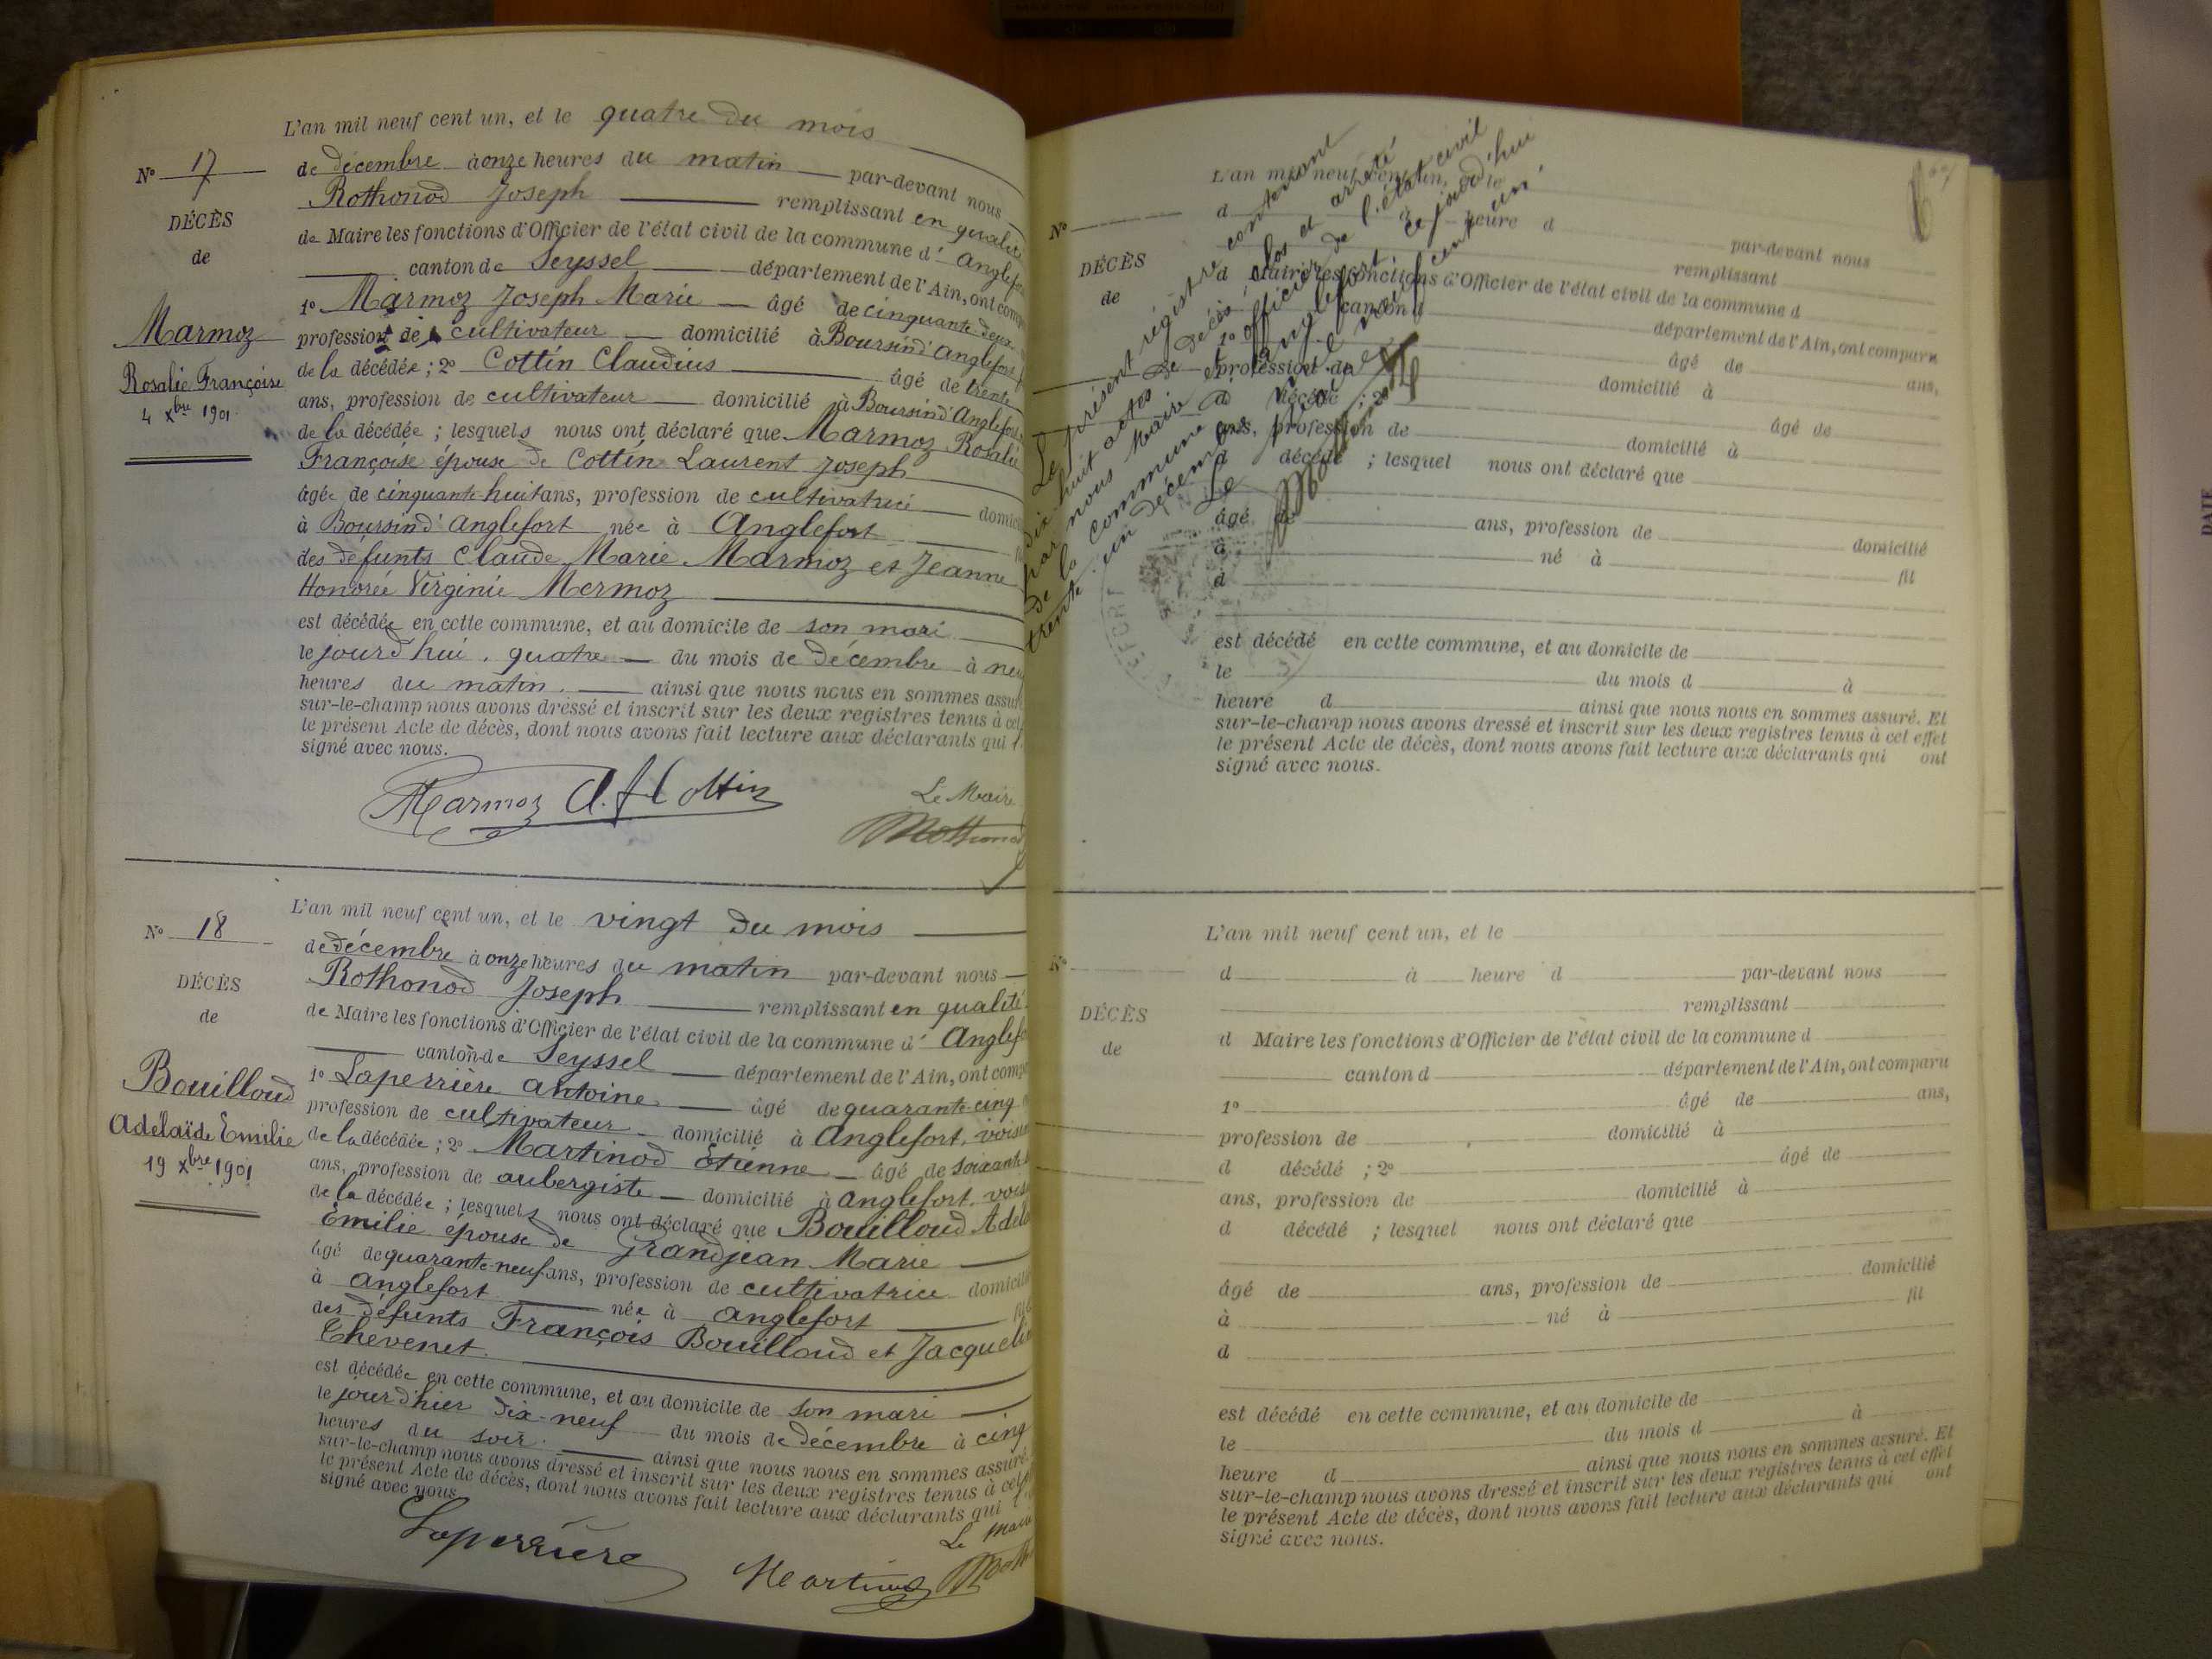 L'an mil neuf cent un, et le quatre du mois
N° 17
de décembre à onze heures du matin par-devant nous
Rothonod Joseph remplissant en qualité
DÉCÈS
de Maire les fonctions d'Officier de l'état civil de la commune d'Anglefort
de
canton de Seyssel département de l'Ain, ont comp
1° Marmoz Joseph Marie âgé de cinquante deux
Marmoz
profession de cultivateur domicilié à Boursin d'Anglefort
de la décédée ; 2° Cottin Claudius âgé de trente
Rosalie Françoise
ans, profession de cultivateur domicilié à Boursin d'Anglefort
4 Xbre 1901
de la décédée ; lesquels nous ont déclaré que Marmoz Rosalie
Françoise épouse de Cottin Laurent Joseph
âgée de cinquante-huit ans, profession de cultivatrice domici
à Boursin d'Anglefort née à Anglefort
des défunts Claude Marie Marmoz et Jeanne
Honorée Virginie Mermoz
est décédée en cette commune, et au domicile de son mari
le jourd'hui quatre du mois de décembre à neu
heures du matin. ainsi que nous nous en sommes assuré
sur-le-champ nous avons dressé et inscrit sur les deux registres tenus à cet
le présent Acte de décès, dont nous avons fait lecture aux déclarants qui
signé avec nous.
Marmoz Cottin
Le Maire
Rothonod
L'an mil neuf cent un, et le vingt du mois
N° 18
de décembre à onze heures du matin par-devant nous
Rothonod Joseph remplissant en qualité
DÉCÈS
de Maire les fonctions d'Officier de l'état civil de la commune d'Anglefo
de
canton de Seyssel département de l'Ain, ont comp
1° Laperrière Antoine âgé de quarante-cinq
Bouilloud
profession de cultivateur domicilié à Anglefort, voisin
Adélaïde Emilie
de la décédée ; 2° Martinod Etienne âgé de soixante
19 Xbre 1901
ans, profession de aubergiste domicilié à Anglefort, vois
de la décédée ; lesquels nous ont déclaré que Bouilloud Adela
Emilie épouse de Grandjean Marie
âgé de quarante-neuf ans, profession de cultivatrice domicilié
à Anglefort née à Anglefort
des défunts François Bouilloud et Jacqueli
Thevenet.
est décédée en cette commune, et au domicile de son mari
le jour d'hier dix-neuf du mois de décembre à cinq
heures du soir. ainsi que nous nous en sommes assuré
sur-le-champ nous avons dressé et inscrit sur les deux registres tenus à cet
le présent Acte de décès, dont nous avons fait lecture aux déclarants qui
signé avec nous.
Laperrière
Martinod
Le Maire
Le présent régistre contenant
dix huit actes de décès, clos et arrêté
par nous Maire et officier de l'état civil
de la commune d'Anglefort, ce jourd'hui
trente un décembre mil neuf cent un.
Le Maire
Rothonod
L'an mil neuf cent un, et le
N°
d à heure d par-devant nous
remplissant
DÉCÈS
d Maire les fonctions d'Officier de l'état civil de la commune d
de
canton d département de l'Ain, ont comparu
1° âgé de ans,
profession de domicilié à
d décédé ; 2° âgé de
ans, profession de domicilié à
d décédé ; lesquel nous ont déclaré que
âgé de ans, profession de domicilié
à né à fil
d
est décédé en cette commune, et au domicile de
le du mois d à
heure d ainsi que nous nous en sommes assuré. Et
sur-le-champ nous avons dressé et inscrit sur les deux registres tenus à cet effet
le présent Acte de décès, dont nous avons fait lecture aux déclarants qui ont
signé avec nous.
L'an mil neuf cent un, et le
N°
d à heure d par-devant nous
remplissant
DÉCÈS
d Maire les fonctions d'Officier de l'état civil de la commune d
de
canton d département de l'Ain, ont comparu
1° âgé de ans,
profession de domicilié à
d décédé ; 2° âgé de
ans, profession de domicilié à
d décédé ; lesquel nous ont déclaré que
âgé de ans, profession de domicilié
à né à fil
d
est décédé en cette commune, et au domicile de
le du mois d à
heure d ainsi que nous nous en sommes assuré. Et
sur-le-champ nous avons dressé et inscrit sur les deux registres tenus à cet effet
le présent Acte de décès, dont nous avons fait lecture aux déclarants qui ont
signé avec nous.
DATE